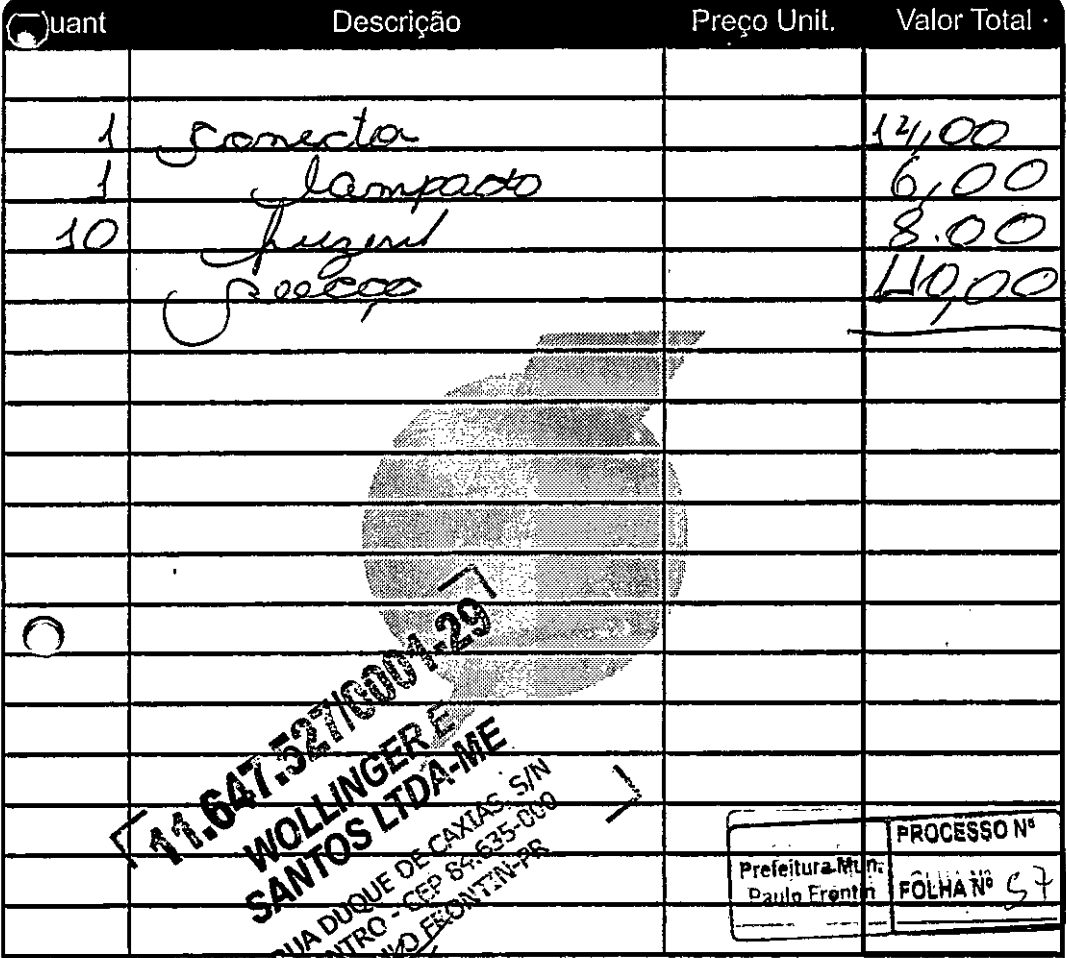 Quant Descrição Preço Unit. Valor Total
1 Conecta 14,00
1 lampada 6,00
10 fuzivil 8.00
40,00
11.647.527/0001-29
WOLLINGER E
SANTOS LTDA-ME
RUA DUQUE DE CAXIAS, S/N
CENTRO - CEP 84.635-000
FRONTIN-PR
PROCESSO Nº
Prefeitura Mun.
Paulo Frontin
FOLHA Nº 57